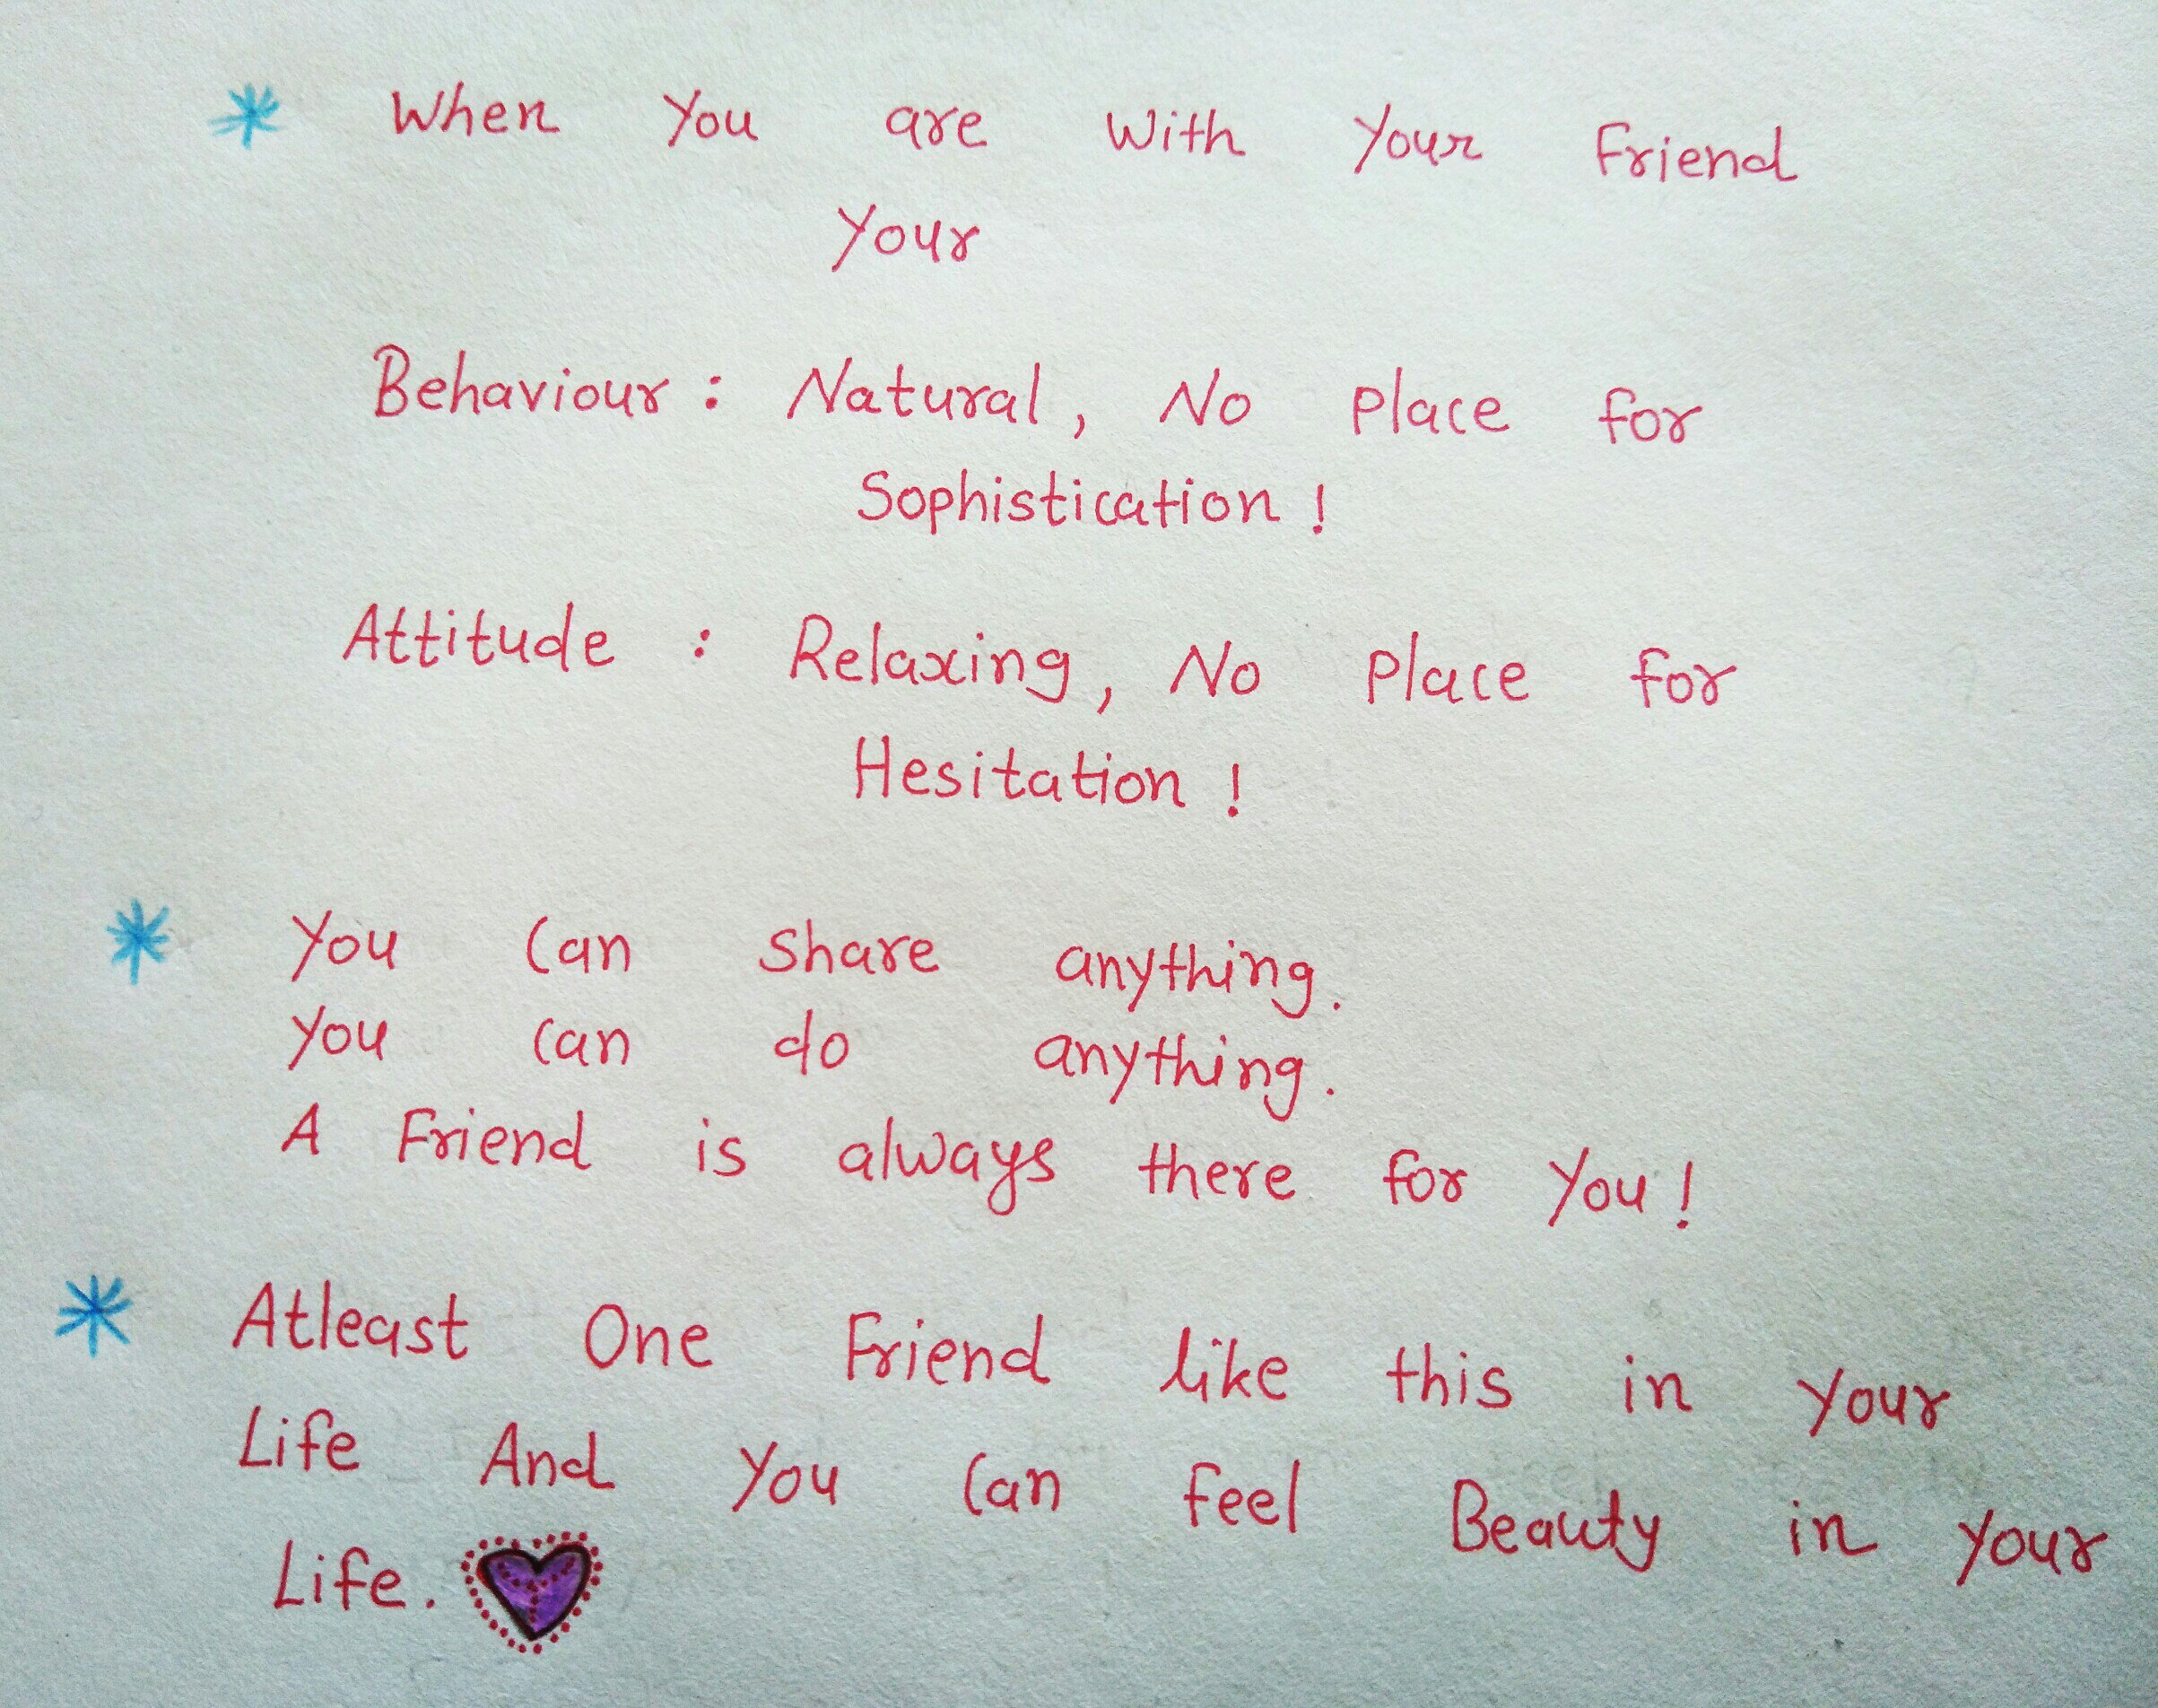 * When You are With Your Friend
Your
Behaviour : Natural, No Place for
Sophistication !
Attitude : Relaxing, No Place for
Hesitation !
* You Can Share anything.
You Can do anything.
A Friend is always there for You !
* Atleast One Friend like this in Your
Life And You Can feel Beauty in Your
Life.